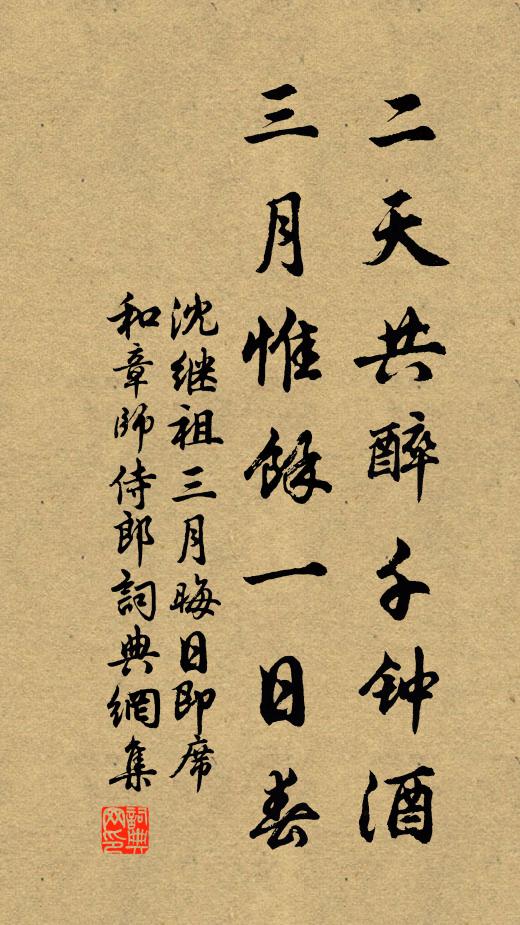 二天共醉千钟酒
三月惟餘一日春
沈继祖三月晦日即席
和章师侍郎詞典網集
詞典网印